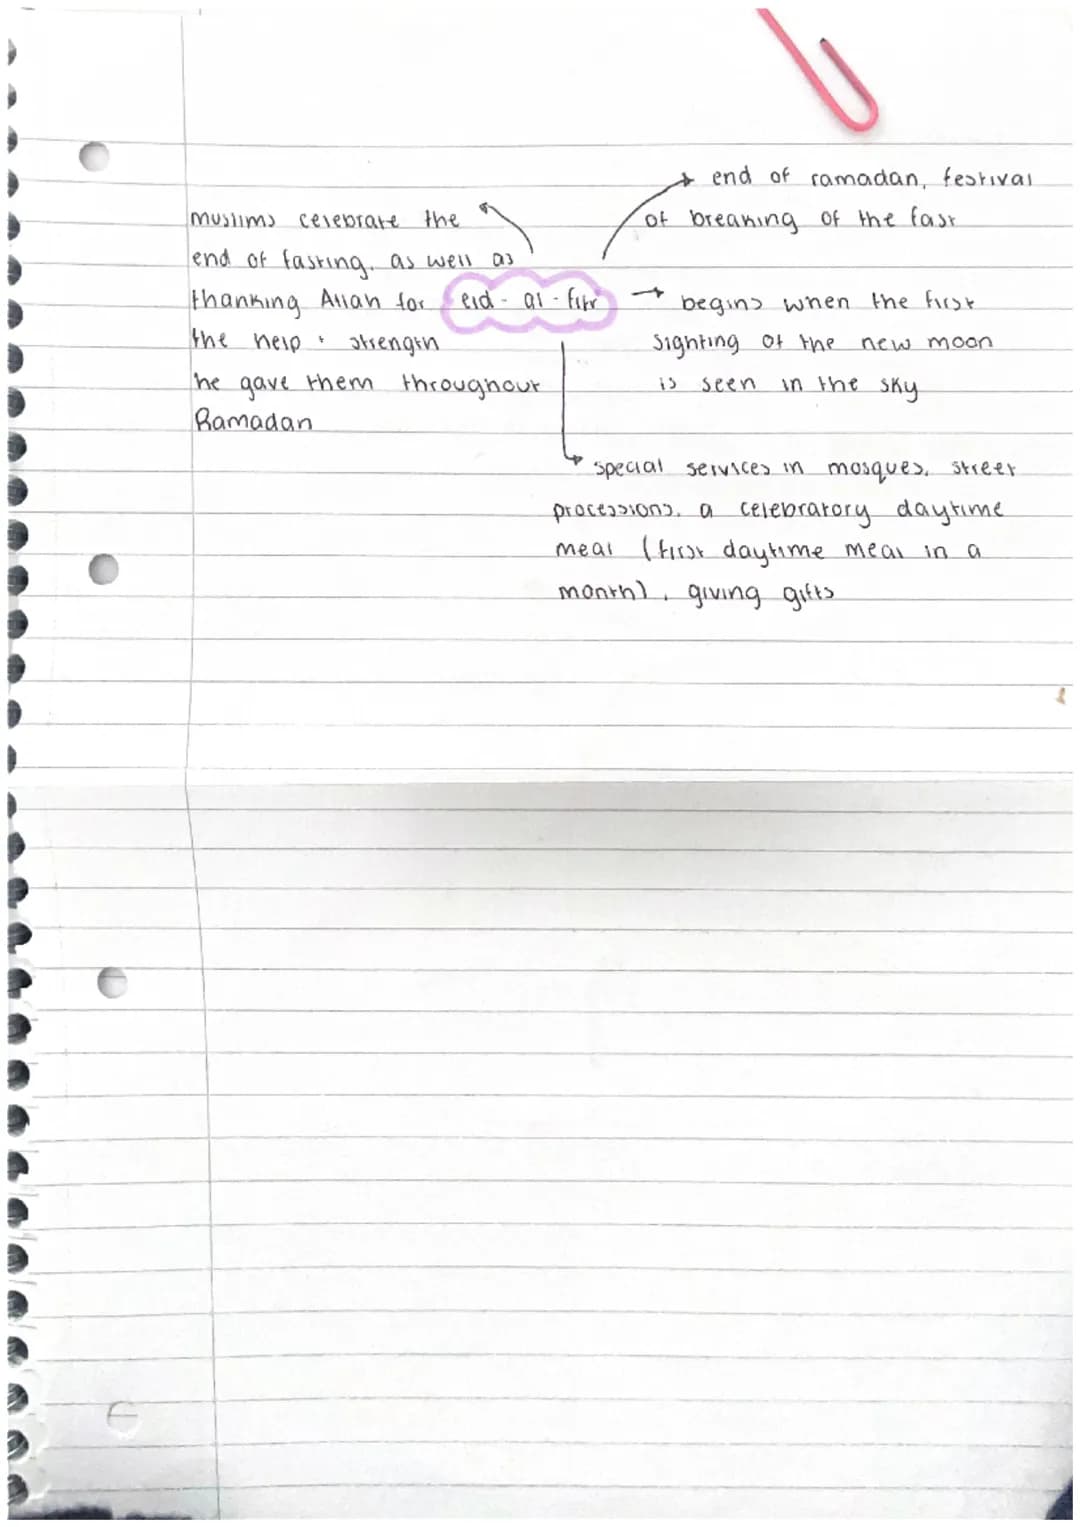 end of ramadan, festival
of breaking of the fast
muslims celebrate the
end of fasting, as well as
thanking Allah for
the help + strength
he gave them throughout
Ramadan
eid - al - fitr
begins when the first
sighting of the new moon
is seen in the sky
special services in mosques, street
processions, a celebratory daytime
meal (first daytime meal in a
month), giving gifts